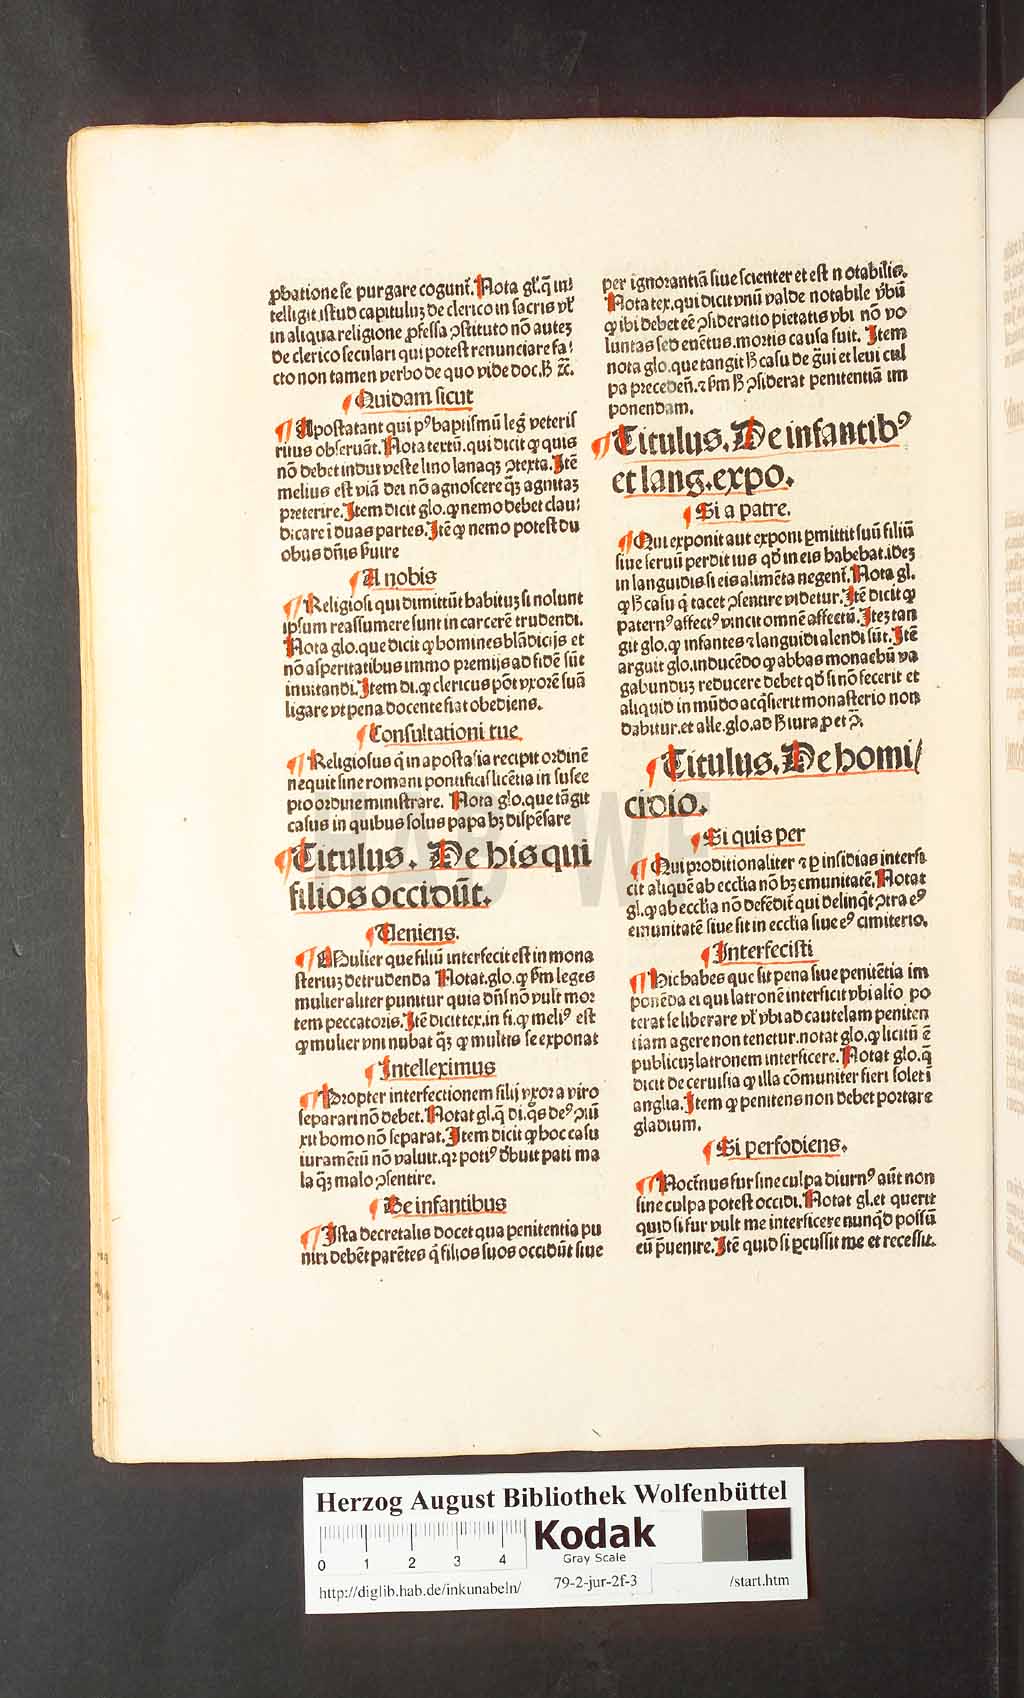 ꝓbatione se purgare cogunt᷑. Nota gl̕. q̄ in⸗
telligit istud capituluꝫ de clerico in sacris vl̕
in aliqua religione ꝓfessa ꝯstituto nō auteꝫ
de clerico seculari qui potest renunciare fa⸗
cto non tamen verbo de quo vide doc. ꝛc̄.
Quidam sicut
¶ Apostatant qui pꝰ baptismū leg̃ veteris
ritus obseruāt. Nota textū. qui dicit ꝙ quis
nō debet indui veste lino lanaqꝫ ꝯtexta. Itē
melius est viā dei nō agnoscere qꝫ agnitaꝫ
preterire. Item dicit glo. ꝙ nemo debet clau⸗
dicare ī duas partes. Itē ꝙ nemo potest du
obus dn̄is ẜuire
¶ A nobis
¶ Religiosi qui dimittūt habituꝫ si nolunt
ipsum reassumere sunt in carcerē trudendi.
Nota glo. que dicit ꝙ homines blādicijs et
nō asperitatibus immo premijs ad fidē sūt
inuitandi. Item di. ꝙ clericus pōt vxorē suā
ligare vt pena docente fiat obediens.
¶ Consultationi tue
¶ Religiosus q̄ in apostasia recipit ordinē
nequit sine romani pontificis licētia in susce
pto ordine ministrare. Nota glo. que tāgit
casus in quibus solus papa hꝫ dispēsare
¶ Titulus. De his qui
filios occidūt.
¶ Veniens.
¶ Mulier que filiū interfecit est in mona
steriuꝫ detrudenda Notat. glo. ꝙ ẜm leges
mulier aliter punitur quia dn̄s nō vult mor
tem peccatoris. Itē dicit tex. in fi. ꝙ meliꝰ est
ꝙ mulier vni nubat qꝫ ꝙ multis se exponat
¶ Intelleximus
¶ Propter interfectionem filij vxor a viro
separari nō debet. Notat gl. q̄ di. qs deꝰ ꝯiū
xit homo nō separat. Item dicit ꝙ hoc casu
iuramētū nō valuit. qꝛ potiꝰ dꝫbuit pati ma
la qꝫ malo ꝯsentire.
¶ De infantibus
¶ Ista decretalis docet qua penitentia pu
niri debēt parētes q̄ filios suos occidūt siue
per ignorantiā siue scienter et est notabilis.
Nota tex. qui dicit vnū valde notabile v̄bū
ꝙ ibi debet eē ꝯsideratio pietatis vbi nō vo
luntas sed euētus. mortis causa fuit. Item
nota glo. que tangit casu de g̃ui et leui cul
pa preceden̄. ⁊ ẜm ꝯsiderat penitentiā im
ponendam.
¶ Titulus. De infantibꝰ
et lang. expo.
¶ Si a patre.
¶ Qui exponit aut exponi ꝑmittit suū filiū
siue seruū perdit ius qd̕ in eis habebat. ideꝫ
in languidis si eis alimēta negent᷑. Nota gl.
ꝙ casu q̄ tacet ꝯsentire videtur. Itē dicit ꝙ
paternꝰ affectꝰ vincit omnē affectū. Iteꝫ tan
git glo. ꝙ infantes ⁊ languidi alendi sūt. Itē
arguit glo. inducēdo ꝙ abbas monachū va
gabunduꝫ reducere debet qd̕ si nō fecerit et
aliquid in mūdo acq̄sierit monasterio non
dabitur. et alle. glo. ad iura ꝓ et ꝯ̄.
¶ Titulus. De homi⸗
cidio.
¶ Si quis per
¶ Qui proditionaliter ⁊ ꝑ insidias interfi
cit aliquē ab ecclia nō hꝫ emunitatē. Notat
gl. ꝙ ab ecclia nō defēdit᷑ qui delinq̄t ꝯtra eꝰ
emunitatē siue sit in ecclia siue eꝰ cimiterio.
¶ Interfecisti
¶ Hic habes que sit pena siue penitētia im
ponēda ei qui latronē interficit vbi alio po
terat se liberare vl̕ vbi ad cautelam peniten
tiam agere non tenetur. notat glo. ꝙ licitū ē
publicuꝫ latronem interficere. Notat glo. q̄
dicit de ceruisia ꝙ illa cōmuniter fieri solet ī
anglia. Item ꝙ penitens non debet portare
gladium.
¶ Si perfodiens.
¶ Noct᷑nus fur sine culpa diurnꝰ aūt non
sine culpa potest occidi. Notat gl. et querit
quid si fur vult me interficere nunqd̕ possū
eū p̄uenire. Itē quid si ꝑcussit me et recessit.
HAB-WF
Herzog August Bibliothek Wolfenbüttel
0 1 2 3 4
Kodak
Gray Scale
http://diglib.hab.de/inkunabeln/ 79-2-jur-2f-3 /start.htm